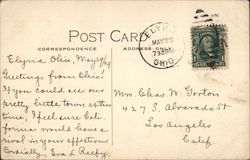 POST CARD
CORRESPONDENCE
ADDRESS ONLY
ELYRIA
MAY 20
OHIO
Elyria Ohio, May
Greetings from Ohio!
If you could see our
pretty little town at this
time, I feel sure Cali-
fornia would have a
rival in your affections
Cordially, Eva
Mrs. Chas W. Gorton
427 S. Alvarado St
Los Angeles
Calif.